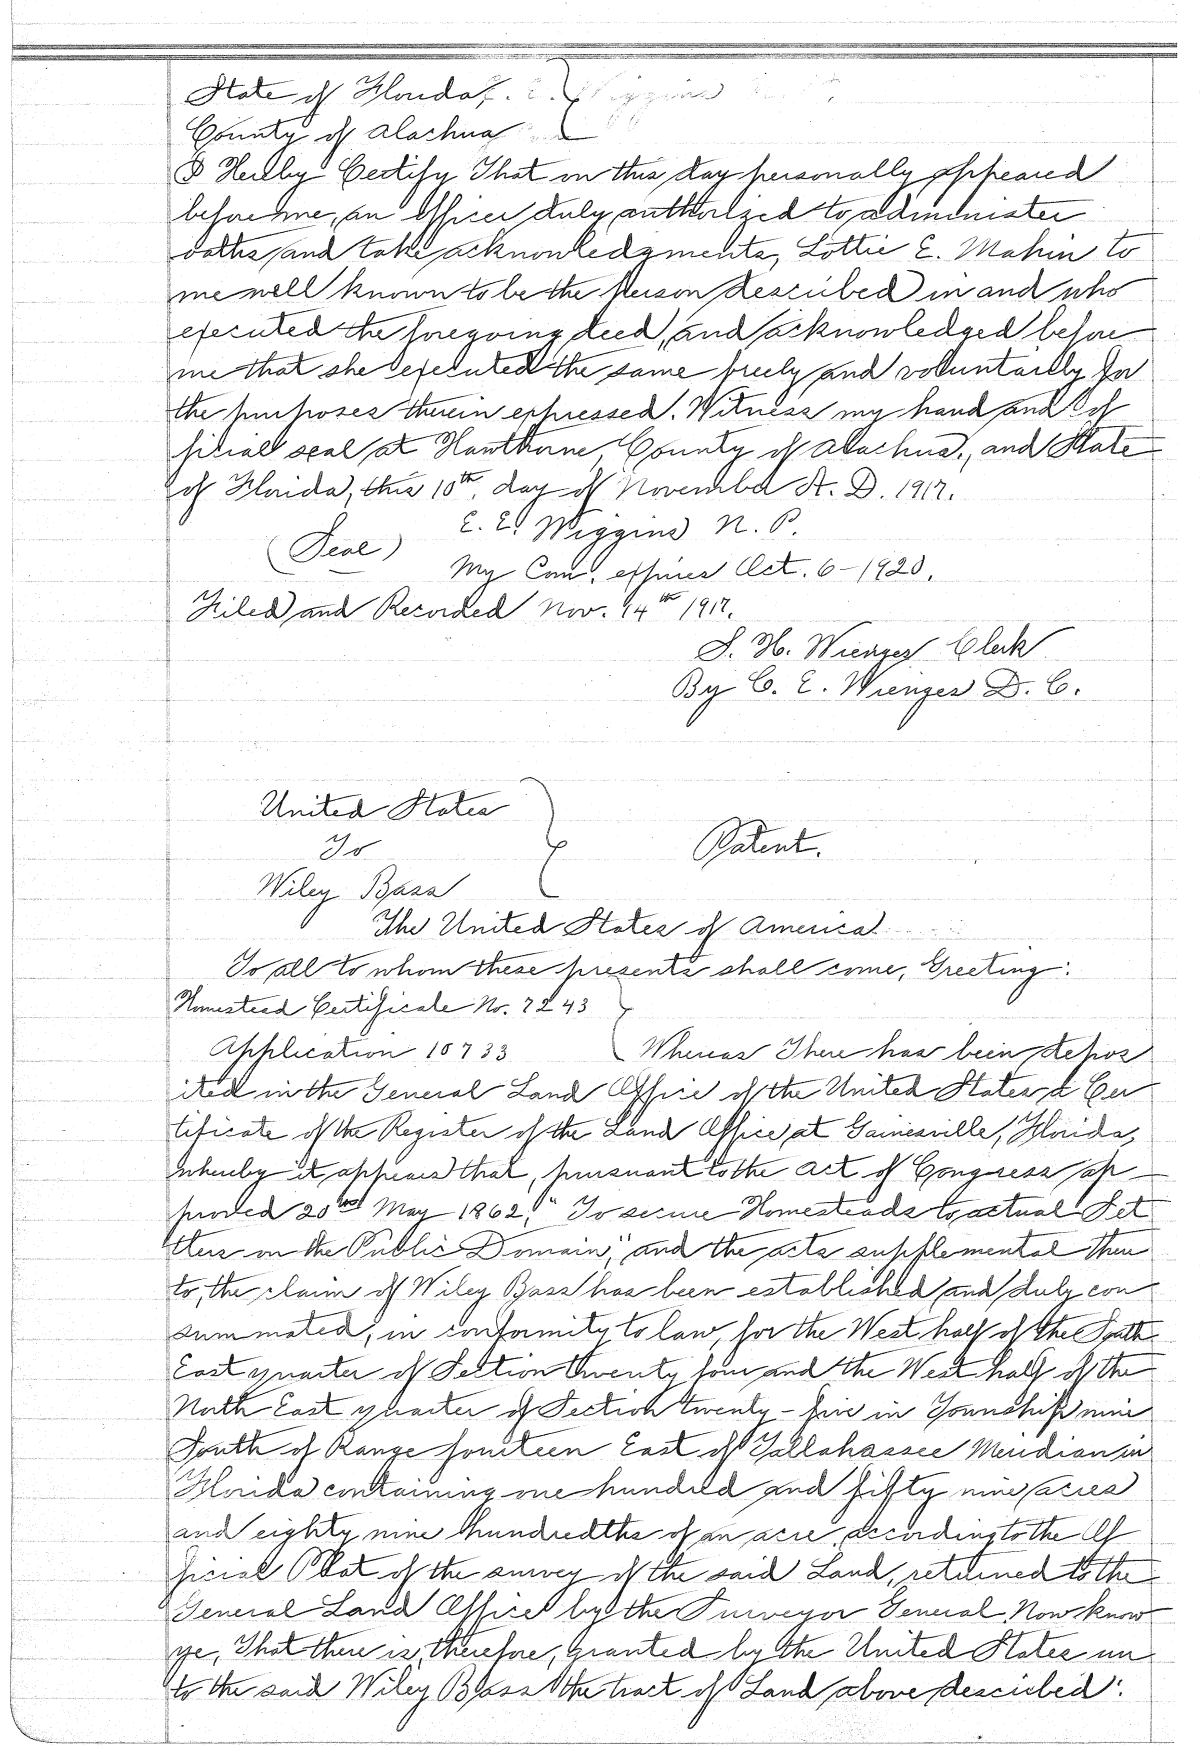 State of Florida,
County of Alachua
I Hereby Certify That on this day personally appeared
before me, an officer duly authorized to administer
oaths and take acknowledgments, Lottie E. Mahin to
me well known to be the person described in and who
executed the foregoing deed, and acknowledged before
me that she executed the same freely and voluntarily for
the purposes therein expressed. Witness my hand and of
ficial seal at Hawthorne, County of Alachua, and State
of Florida, this 10th day of November A. D. 1917.
E. E. Wiggins N. P.
(Seal)
My Com. expires Oct. 6-1920.
Filed and Recorded Nov. 14th 1917.
S. H. Wienges Clerk
By C. E. Wienges D. C.
United States
To
Patent.
Wiley Bass
The United States of America
To all to whom these presents shall come, Greeting:
Homestead Certificate No. 7243
Application 10733 Whereas There has been depos
ited in the General Land Office of the United States a Cer
tificate of the Register of the Land Office at Gainesville, Florida,
whereby it appears that, pursuant to the act of Congress ap-
proved 20th May 1862, "To secure Homesteads to actual Set
tlers on the Public Domain," and the acts supplemental there
to, the claim of Wiley Bass has been established and duly con
summated, in conformity to law, for the West half of the South
East quarter of Section twenty four and the West half of the
North East quarter of Section twenty-five in Township nine
South of Range fourteen East of Tallahassee Meridian in
Florida containing one hundred and fifty nine acres
and eighty nine hundredths of an acre, according to the Of
ficial Plat of the survey of the said Land, returned to the
General Land Office by the Surveyor General. Now know
ye, That there is, therefore, granted by the United States un
to the said Wiley Bass the tract of Land above described: